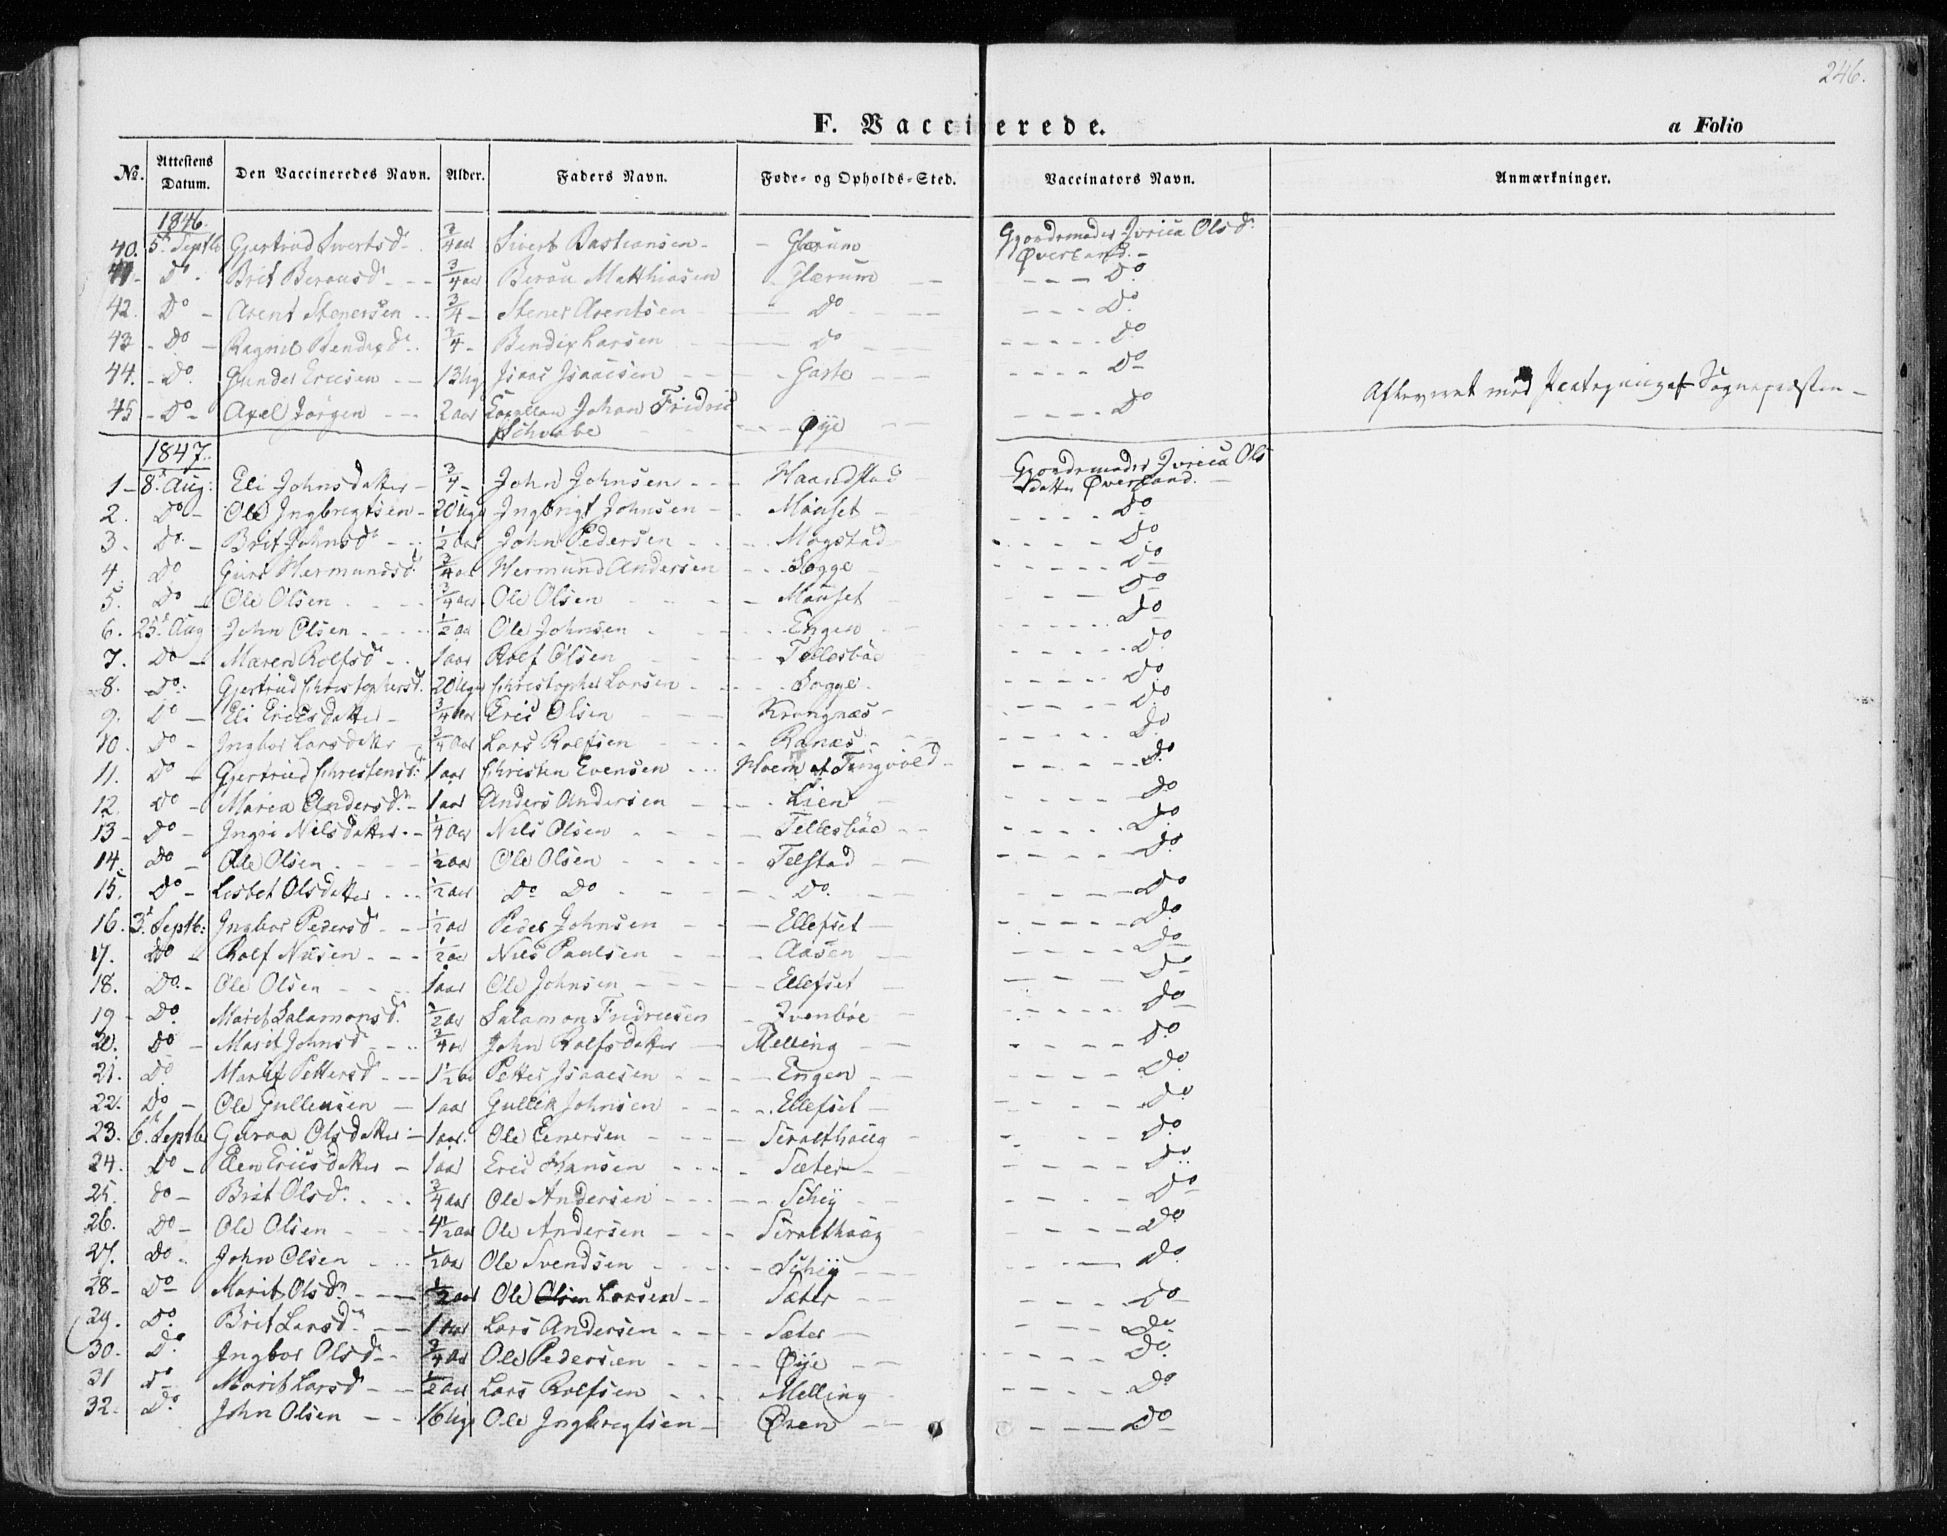 246.
F. Vaccinerede.
a Folio
No. | Attestens Datum. | Den Vaccineredes Navn. | Alder. | Faders Navn. | Føde- og Opholds-Sted. | Vaccinators Navn. | Anmærkninger.
1846.
40. 5t Septb Gjertrud Sivertsd. 3/4 aar Sivert Bastiansen - Glærum Gjordemoder Olsd.
Øverland. -
41 - Do. Brit Berousd. - - 3/4 aar Berou Matthiasen Glærum - - Do
42. Do - Arent Stenersen - 3/4 - Stener Arentsen - Do - Do.
43 - Do - Ragnel Bendixd. 3/4 - Bendix Larsen - Do - Do
44. - Do. Gunder Ericsen - - 13 Ug Isaac Isaacsen - Garte - Do
45 - Do - Axel Jørgen - - 2 aar Capellan Johan Fridric - Do
Schvabe - Øye
Afleveret med Paategning af Sognepræsten -
1847.
1 - 8t Aug: Eli Johnsdatter - 3/4 - John Johnsen - - Haandstad Gjordemoder Ols
datter Øverland. -
2. Do - Ole Ingbrigtsen - 20 Uger Ingbrigt Johnsen - Mauset - Do
3 - Do. - Brit Johnsd. - 1/2 aar John Pedersen - Mogstad - Do.
4. Do Guri Hermundsd. 3/4 aar Hermund Andersen - Sogge - Do
5. Do - Ole Olsen - 3/4 aar Ole Olsen - Mauset - Do
6. 25t Aug John Olsen - 1/2 aar Ole Johnsen - Engen - Do
7. Do - Maren Rolfsd. - 1 aar Rolf Olsen - Tellesbøe - Do.
8. Do. Gjertrud Christophersd. 20 Uger Christopher Larsen - Sogge. - Do.
9. Do - Eli Ericsdatter - 3/4 aar Eric Olsen - Krangnæs - Do.
10. Do - Ingbor Larsdatter - 3/4 aar Lars Rolfsen - Ranæs - Do.
11. Do - Gjertrud Christensd. 1 aar Christen Evensen - Hoem af Tingvold - Do.
12. Do - Maria Andersd. - 1 aar Anders Andersen - Lien - Do
13 - Do - Ingri Nilsdatter - 1/4 aar Nils Olsen - Tellesbøe - Do.
14. Do - Ole Olsen - 1/2 aar Ole Olsen - Telstad - Do
15. Do - Lisbet Olsdatter - 1/2 aar Do Do - Do. - Do
16. 3t Septb: Ingbor Pedersd. - 1/2 aar Peder Johnsen - Ellefset - Do.
17. Do - Rolf Nilsen - 1/2 aar Nils Paulsen - Aasen - Do
18. Do - Ole Olsen - 1 aar Ole Johnsen - Ellefset - Do
19 - Do. Marit Salamonsd. 1/2 aar Salamon Fridricsen - Ivenbøe - Do
20. Do - Marit Johnsd. - 3/4 aar John Rolfsdatter - Melling - Do
21. Do Marit Pettersd. - 1 1/2 aar Petter Isaacsen - Engen - Do.
22. Do - Ole Gullensen - 1 aar Gullik Johnsen - Ellefset - Do
23. 6t Septb Guroa Olsdatter - 1 aar. Ole Einersen - Siralthoug - Do.
24. Do - Elen Ericsdatter - 1 aar Eric Hansen - Sæter - Do.
25. Do - Brit Olsd. - 3/4 aar Ole Andersen - Schey - Do
26. Do - Ole Olsen - 4 1/2 aar Ole Andersen - Siralthoug - Do
27. Do. John Olsen - 1/2 aar Ole Svendsen - Schey - Do.
28 - Do - Marit Olsd. - 1/2 aar Ole Olsen Larsen - Sæter - Do
29. Do. Brit Larsd. - 1 aar Lars Andersen - Sæter - Do
30. Do. Ingbor Olsd. - 3/4 aar Ole Pedersen - Øye - Do.
31 Do Marit Larsd. - 1/2 aar Lars Rolfsen - Melling - Do
32. Do. John Olsen - 16 Uger Ole Ingbrigtsen - Øren - Do